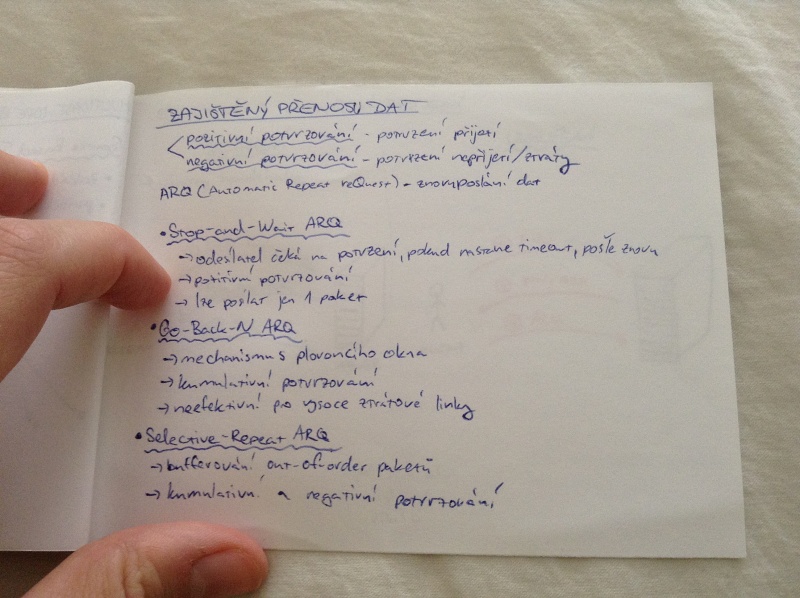 ZAJIŠTĚNÝ PŘENOS DAT
pozitivní potvrzování - potvrzení přijetí
negativní potvrzování - potvrzení nepřijetí/ztráty
ARQ (Automatic Repeat reQuest) - znovuposlání dat
• Stop-and-Wait ARQ
→ odesílatel čeká na potvrzení, pokud nastane timeout, pošle znovu
→ pozitivní potvrzování
→ lze poslat jen 1 paket
• Go-Back-N ARQ
→ mechanismus plovoucího okna
→ kumulativní potvrzování
→ neefektivní pro vysoce ztrátové linky
• Selective-Repeat ARQ
→ bufferování out-of-order paketů
→ kumulativní a negativní potvrzování